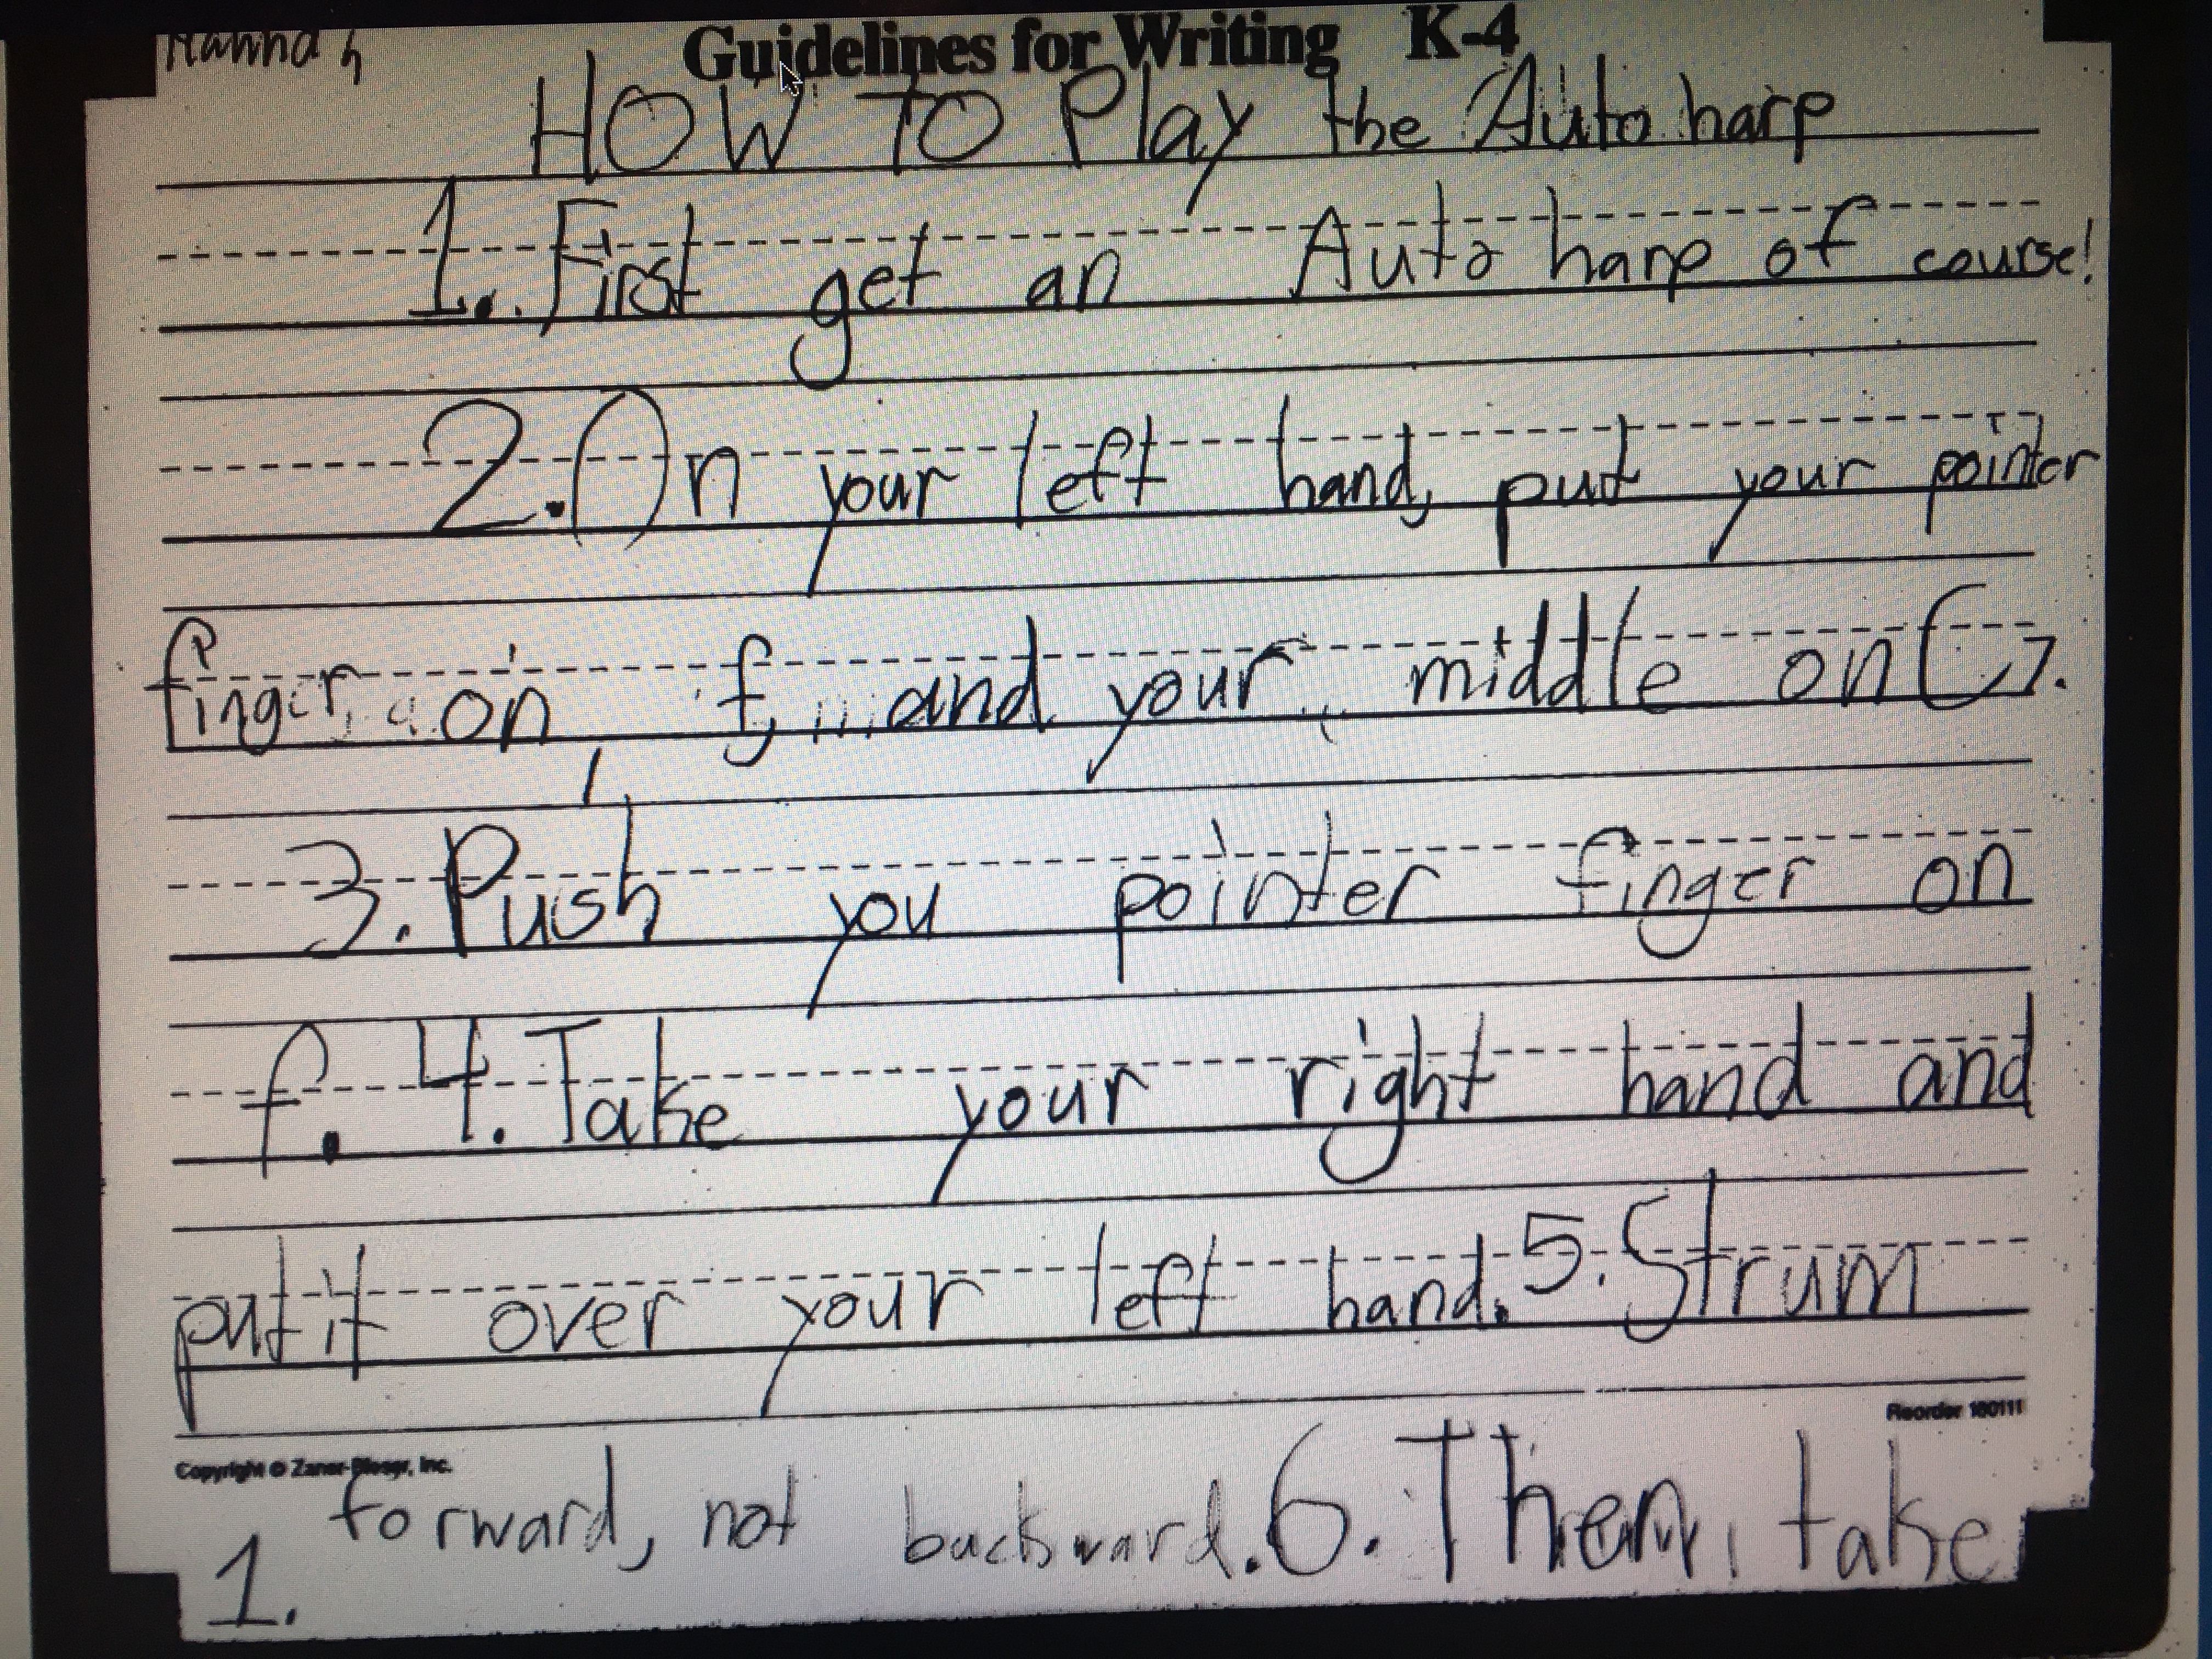 Hannah
Guidelines for Writing K-4
HOW TO Play the Auto harp
1. First get an Auto harp of course!
2. On your left hand, put your pointer
finger, on f, and your middle on C7.
3. Push you pointer finger on
f. 4. Take your right hand and
put it over your left hand. 5. Strum
Reorder 180111
Copyright © Zaner-Bloser, Inc.
forward, not backward. 6. Then, take
1.